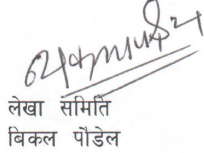 लेखा समिति
बिकल पौडेल